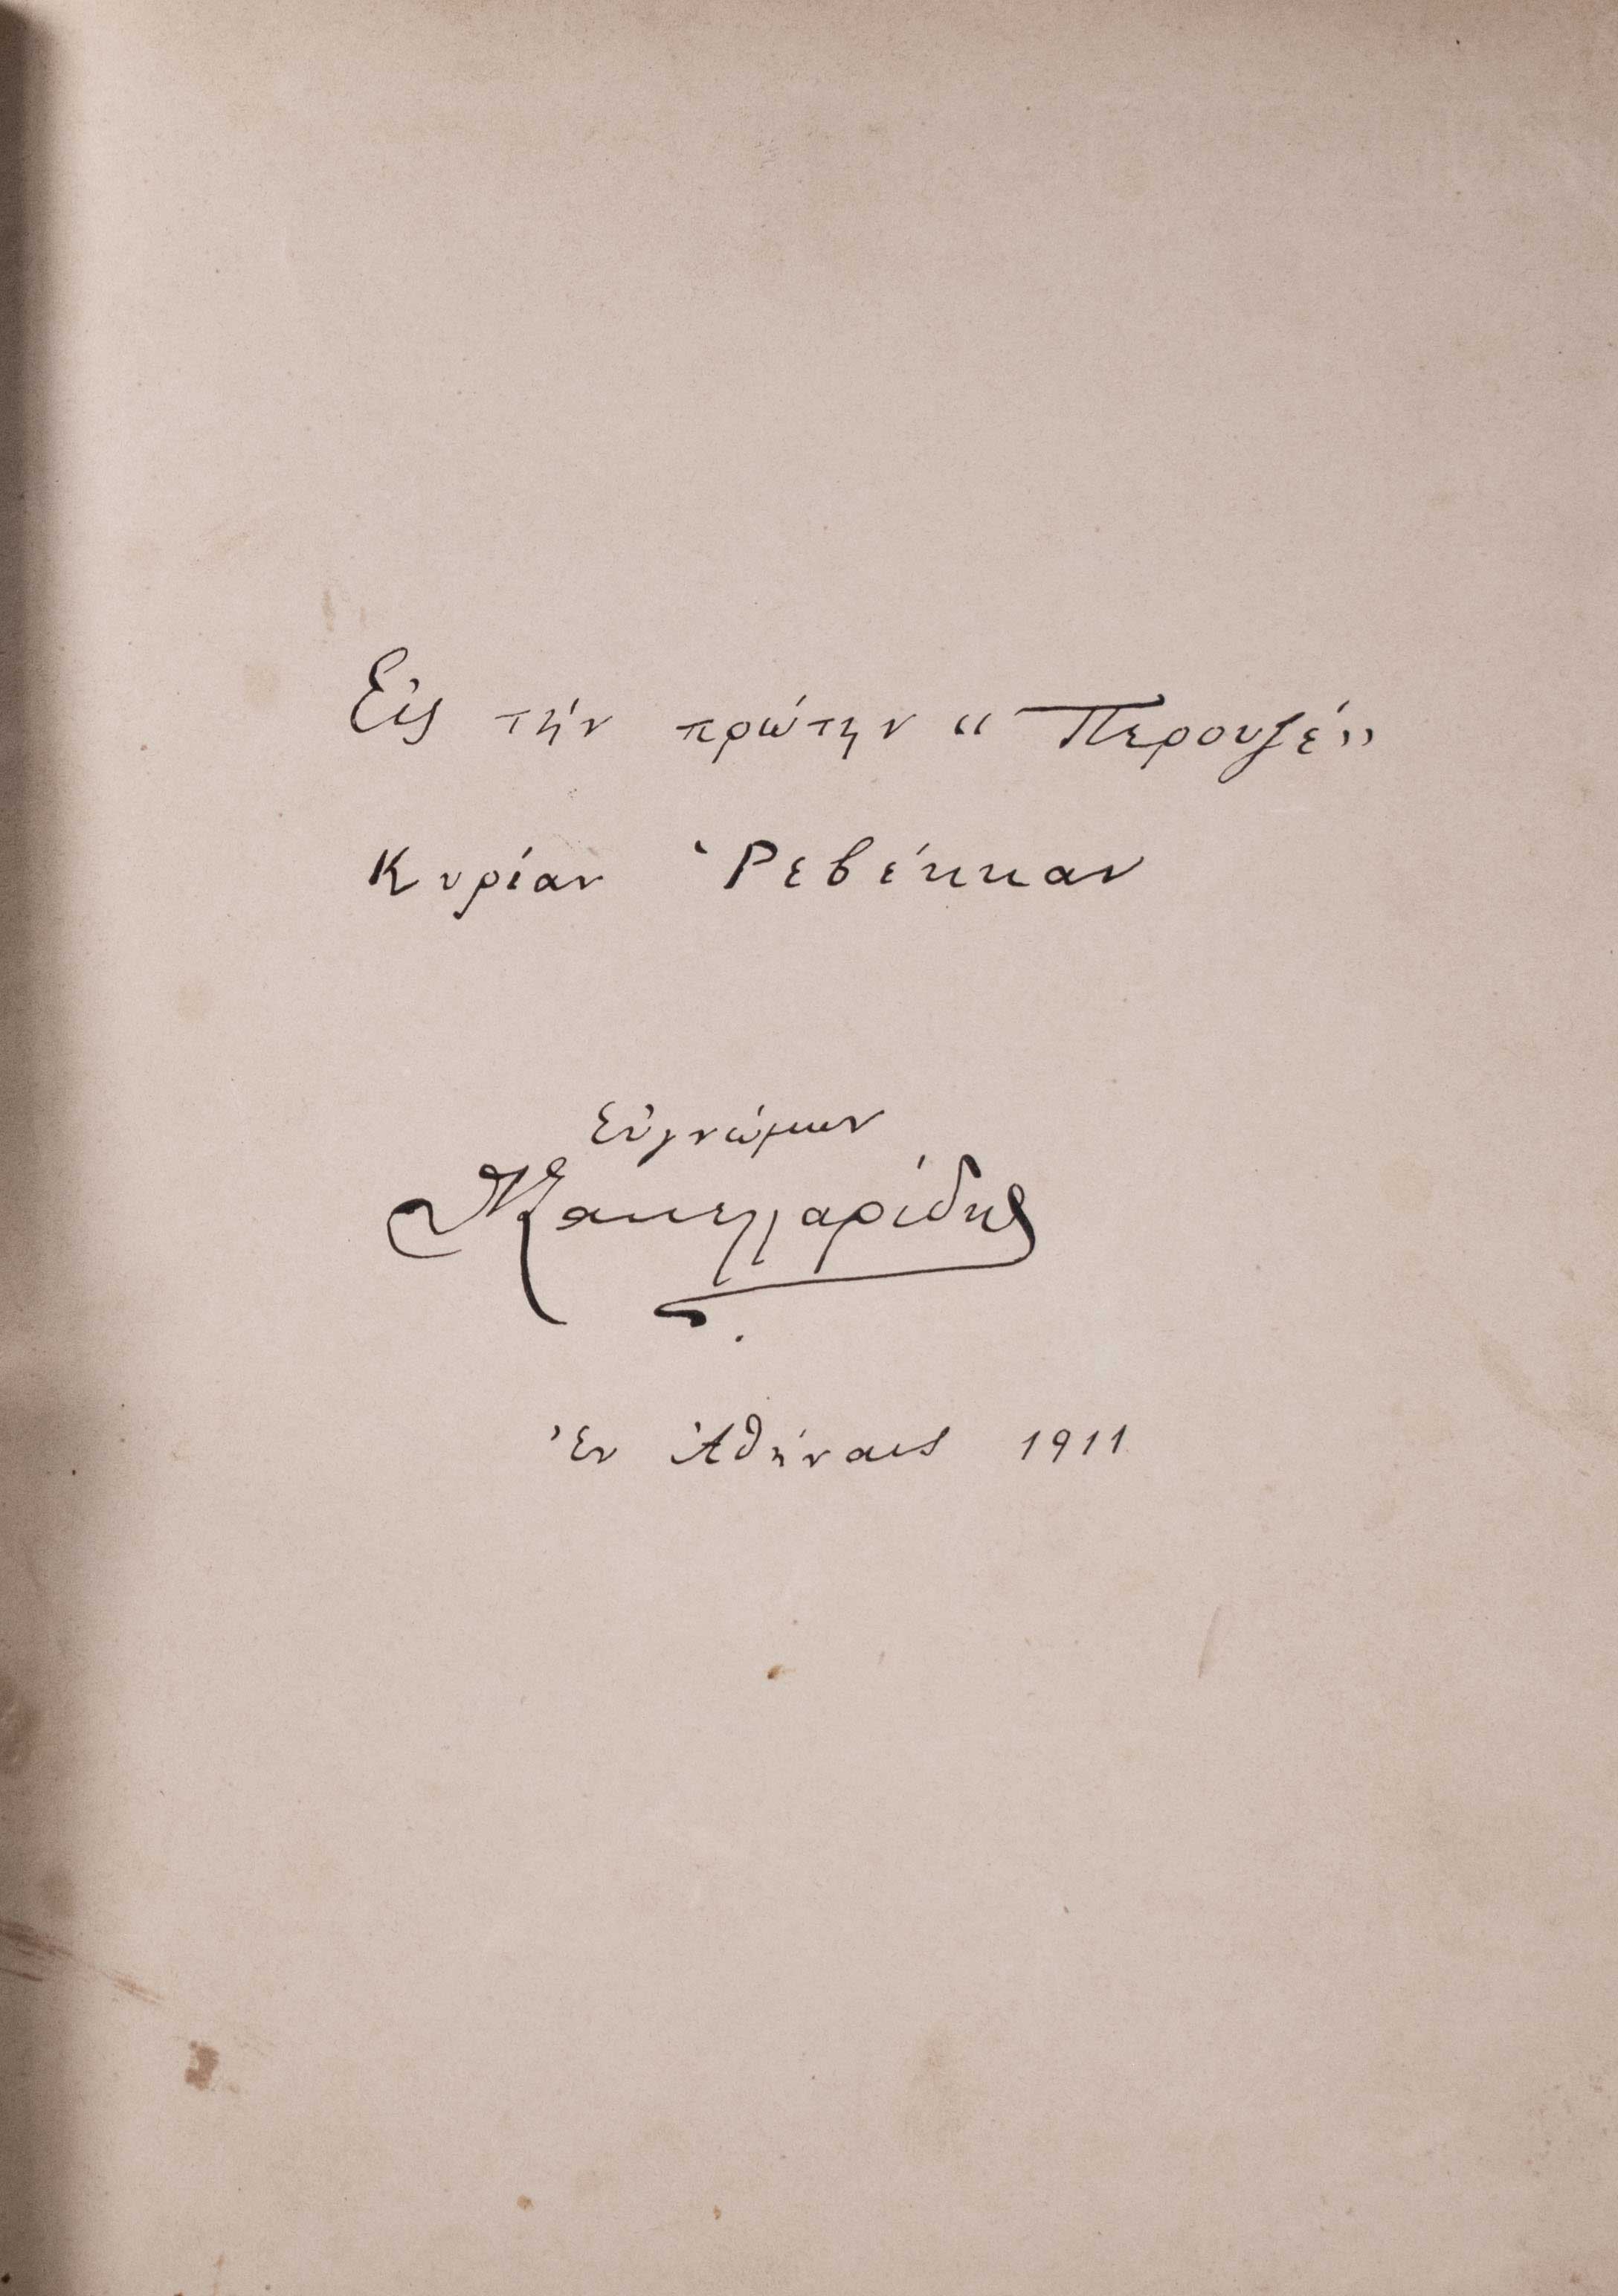 Εἰς τήν πρώτην “Περουζέ”
Κυρίαν Ῥεβέκκαν
Εὐγνώμων
Σακελλαρίδης
Ἐν Ἀθήναις 1911